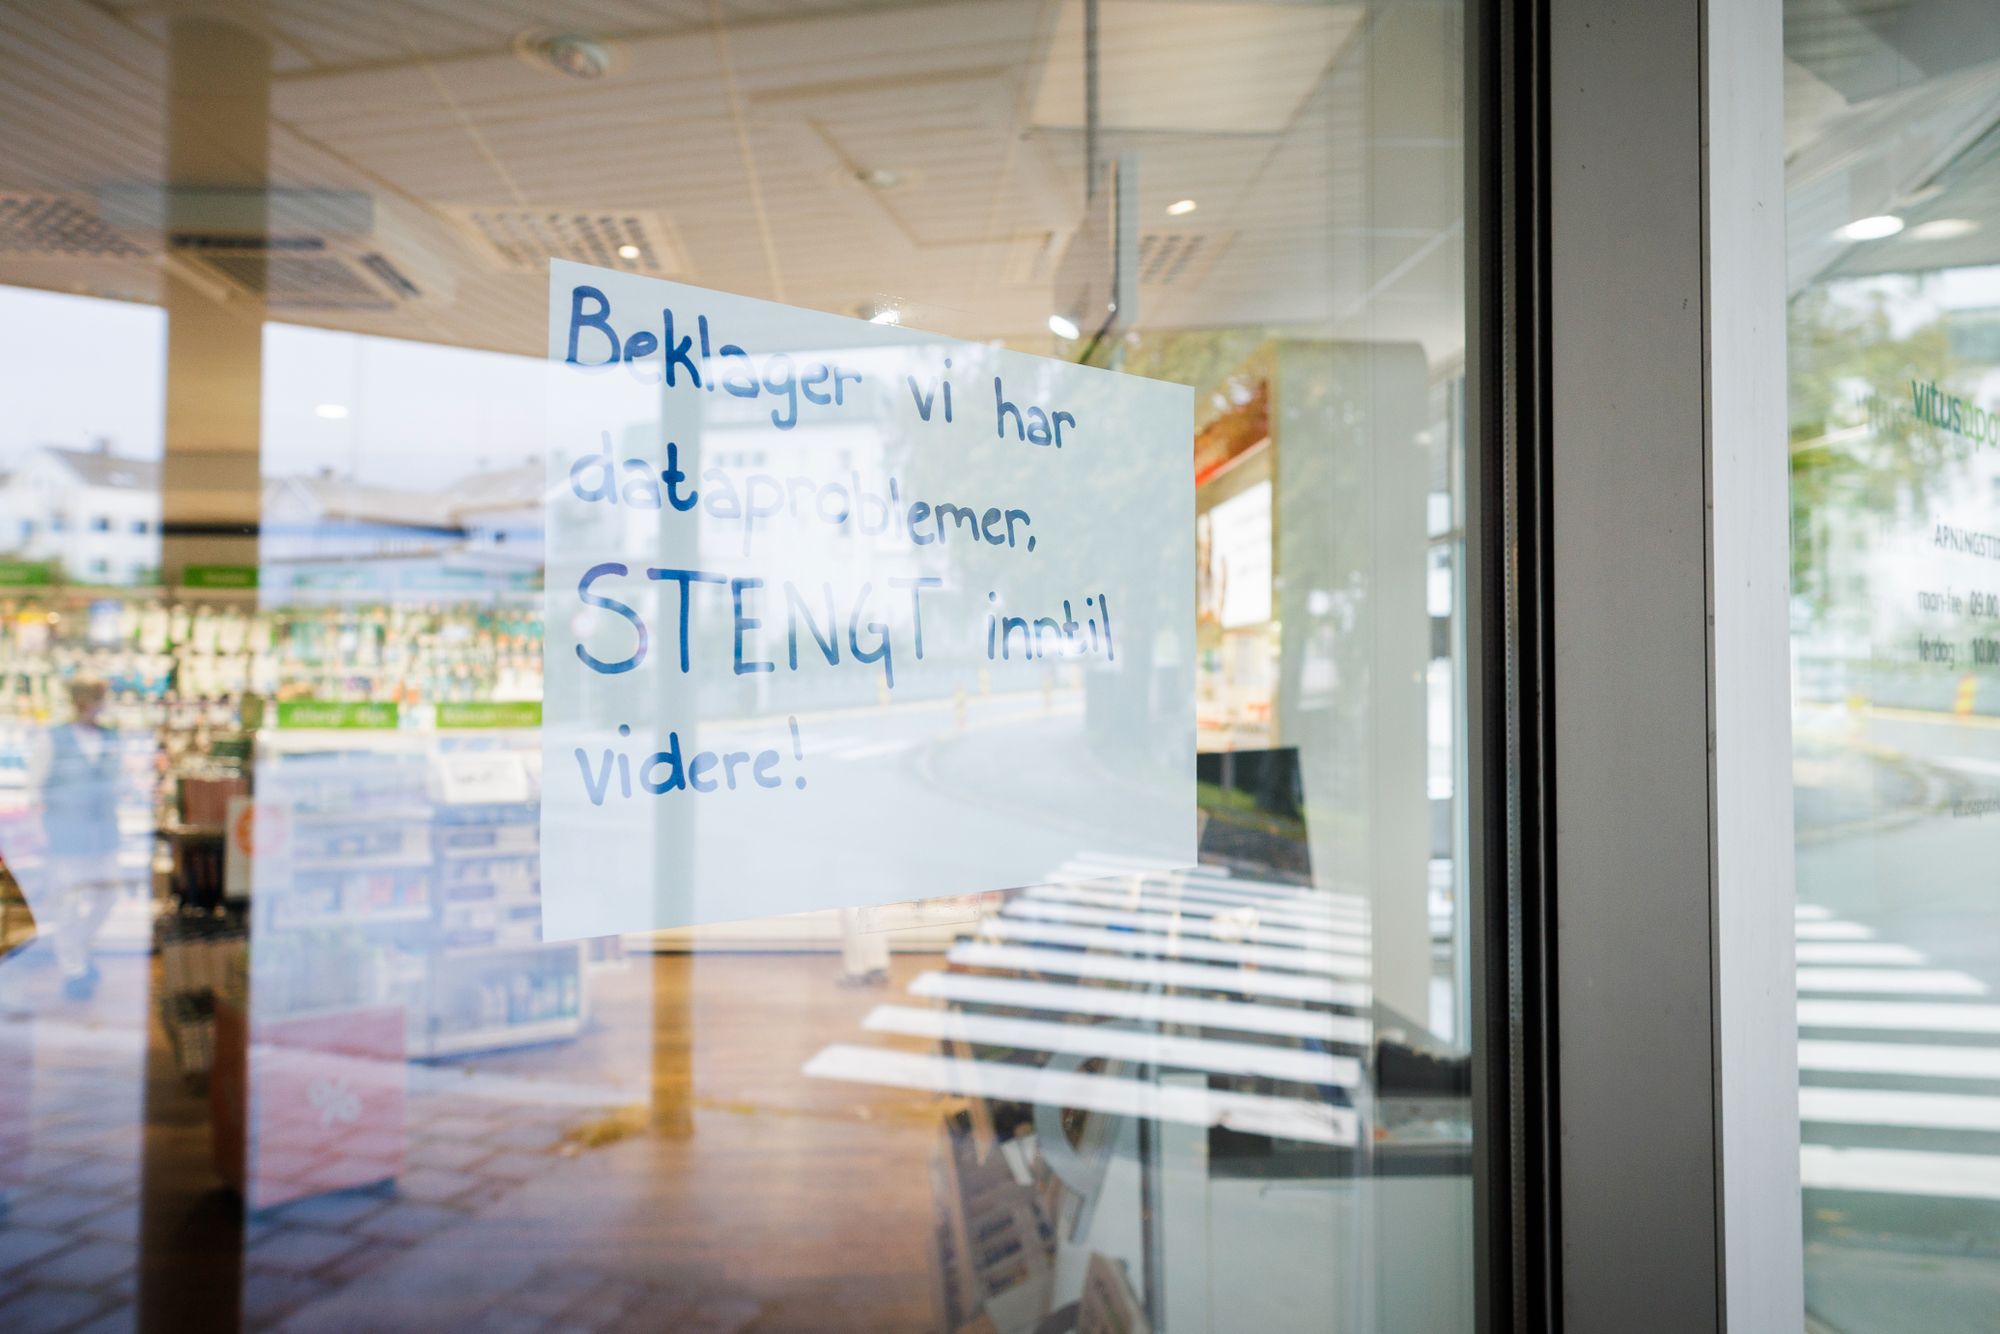 Beklager vi har
dataproblemer,
STENGT inntil
videre!
vitusapo
ÅPNINGSTID
man-fre 09.00
lørdag 10.00
%